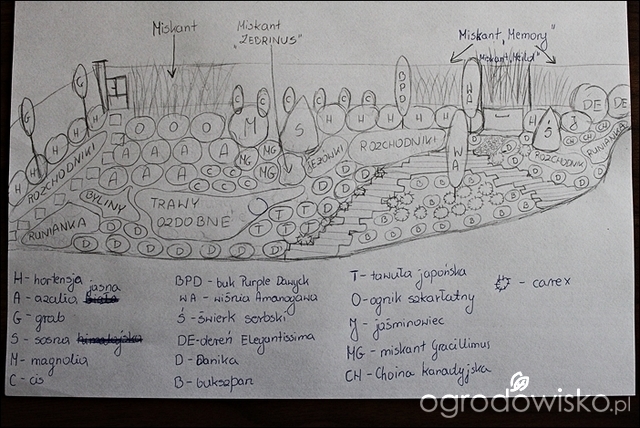 Miskant
Miskant
„ZEBRINUS"
Miskant „Memory"
BPD
WA
DE
DE
ROZCHODNIKI
ROZCHODNIKI
JEŻÓWKI
ROZCHODNIK
RUNIANKA
BYLINY
TRAWY
OZDOBNE
RUNIANKA
WA
H - hortensja
A - azalia jasna
G - grab
S - sosna
M - magnolia
C - cis
BPD - buk Purple Dawyck
WA - wiśnia Amanogawa
Ś - świerk serbski
DE - dereń Elegantissima
D - Danika
B - bukszpan
T - tawuła japońska
O - ognik szkarłatny
J - jaśminowiec
MG - miskant Gracillimus
CH - Choina kanadyjska
- carex
ogrodowisko.pl